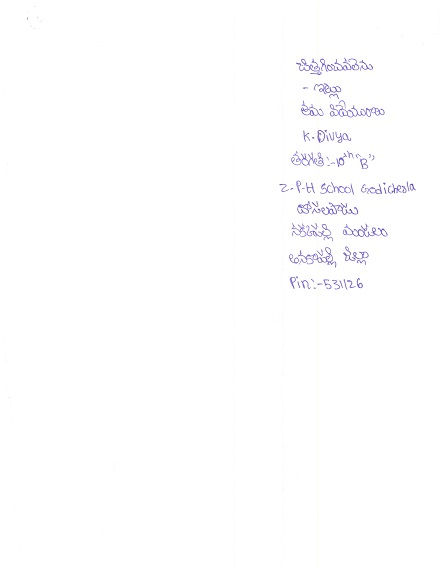 చిత్తగించవలెను
- ఇట్లు
తమ విధేయురాలు
K. Divya
తరగతి:- 10th "B"
Z-P-H School Godicherla
నక్కపల్లి మండలం
అనకాపల్లి జిల్లా
Pin:- 531126